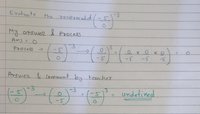 Evaluate the reciprocal (-5/0)^-3
My answer & Process
Ans = 0
Process = (-5/0)^-3 → (0/-5)^3 = (0/-5 × 0/-5 × 0/-5) = 0
Answer & comment by teacher
(-5/0)^-3 → (0/-5)^-3 = (-5/0)^3 = undefined